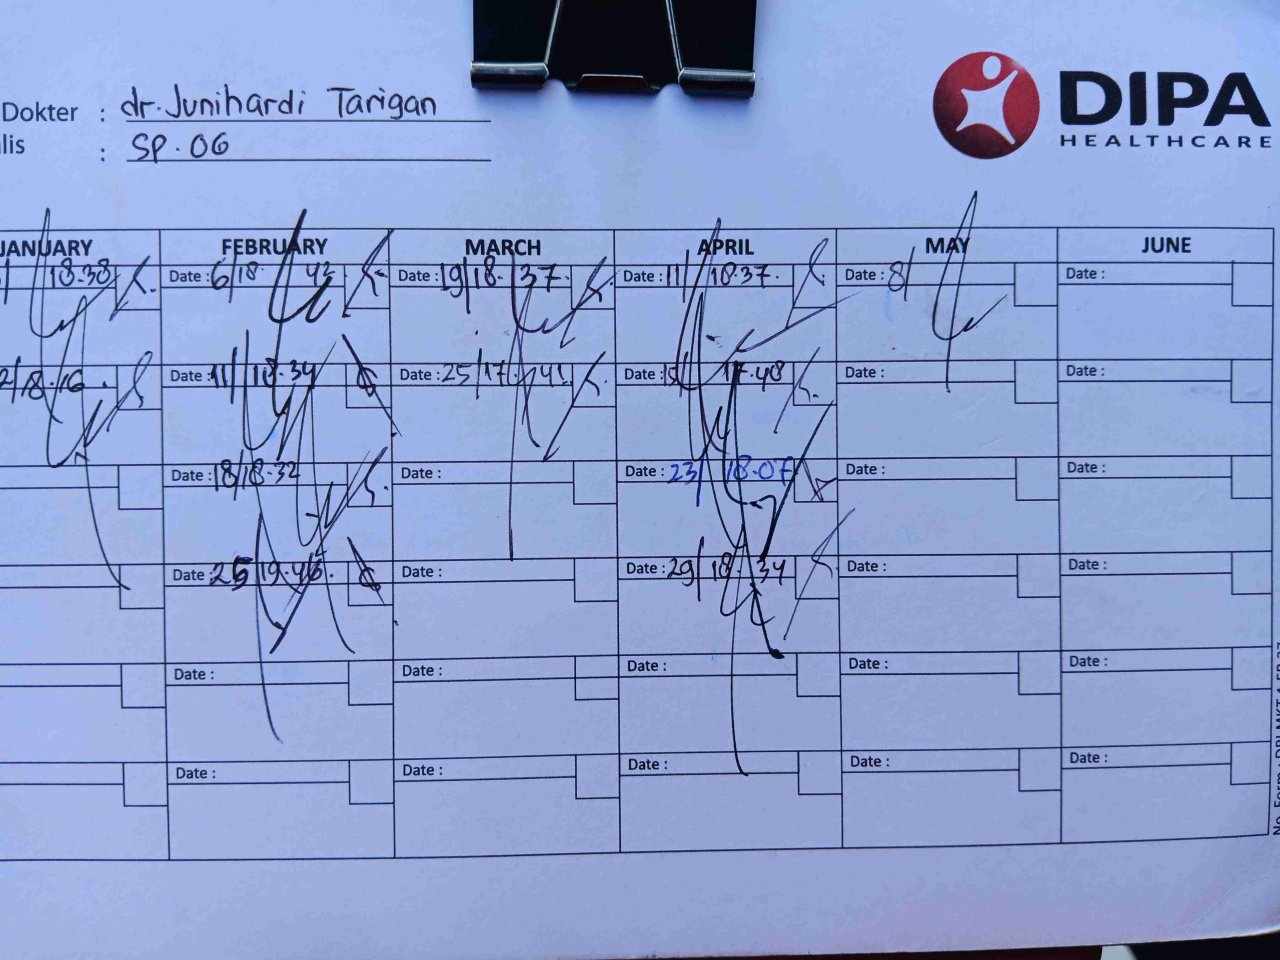 DIPA
HEALTHCARE
Dokter : dr. Junihardi Tarigan
lis : SP. OG
JANUARY FEBRUARY MARCH APRIL MAY JUNE
18.38 Date : 6/18. 42 Date : 19/18. 37. Date : 11/ 18.37. Date : 8/ Date :
2/18.16. Date : 11/18.34 Date : 25/17. 41 Date : 15/ 17.48 Date : Date :
Date : 18/18.32 Date : Date : 23/ 18.07 Date : Date :
Date : 25/19.46. Date : Date : 29/18. 34 Date : Date :
Date : Date : Date : Date : Date :
Date : Date : Date : Date : Date :